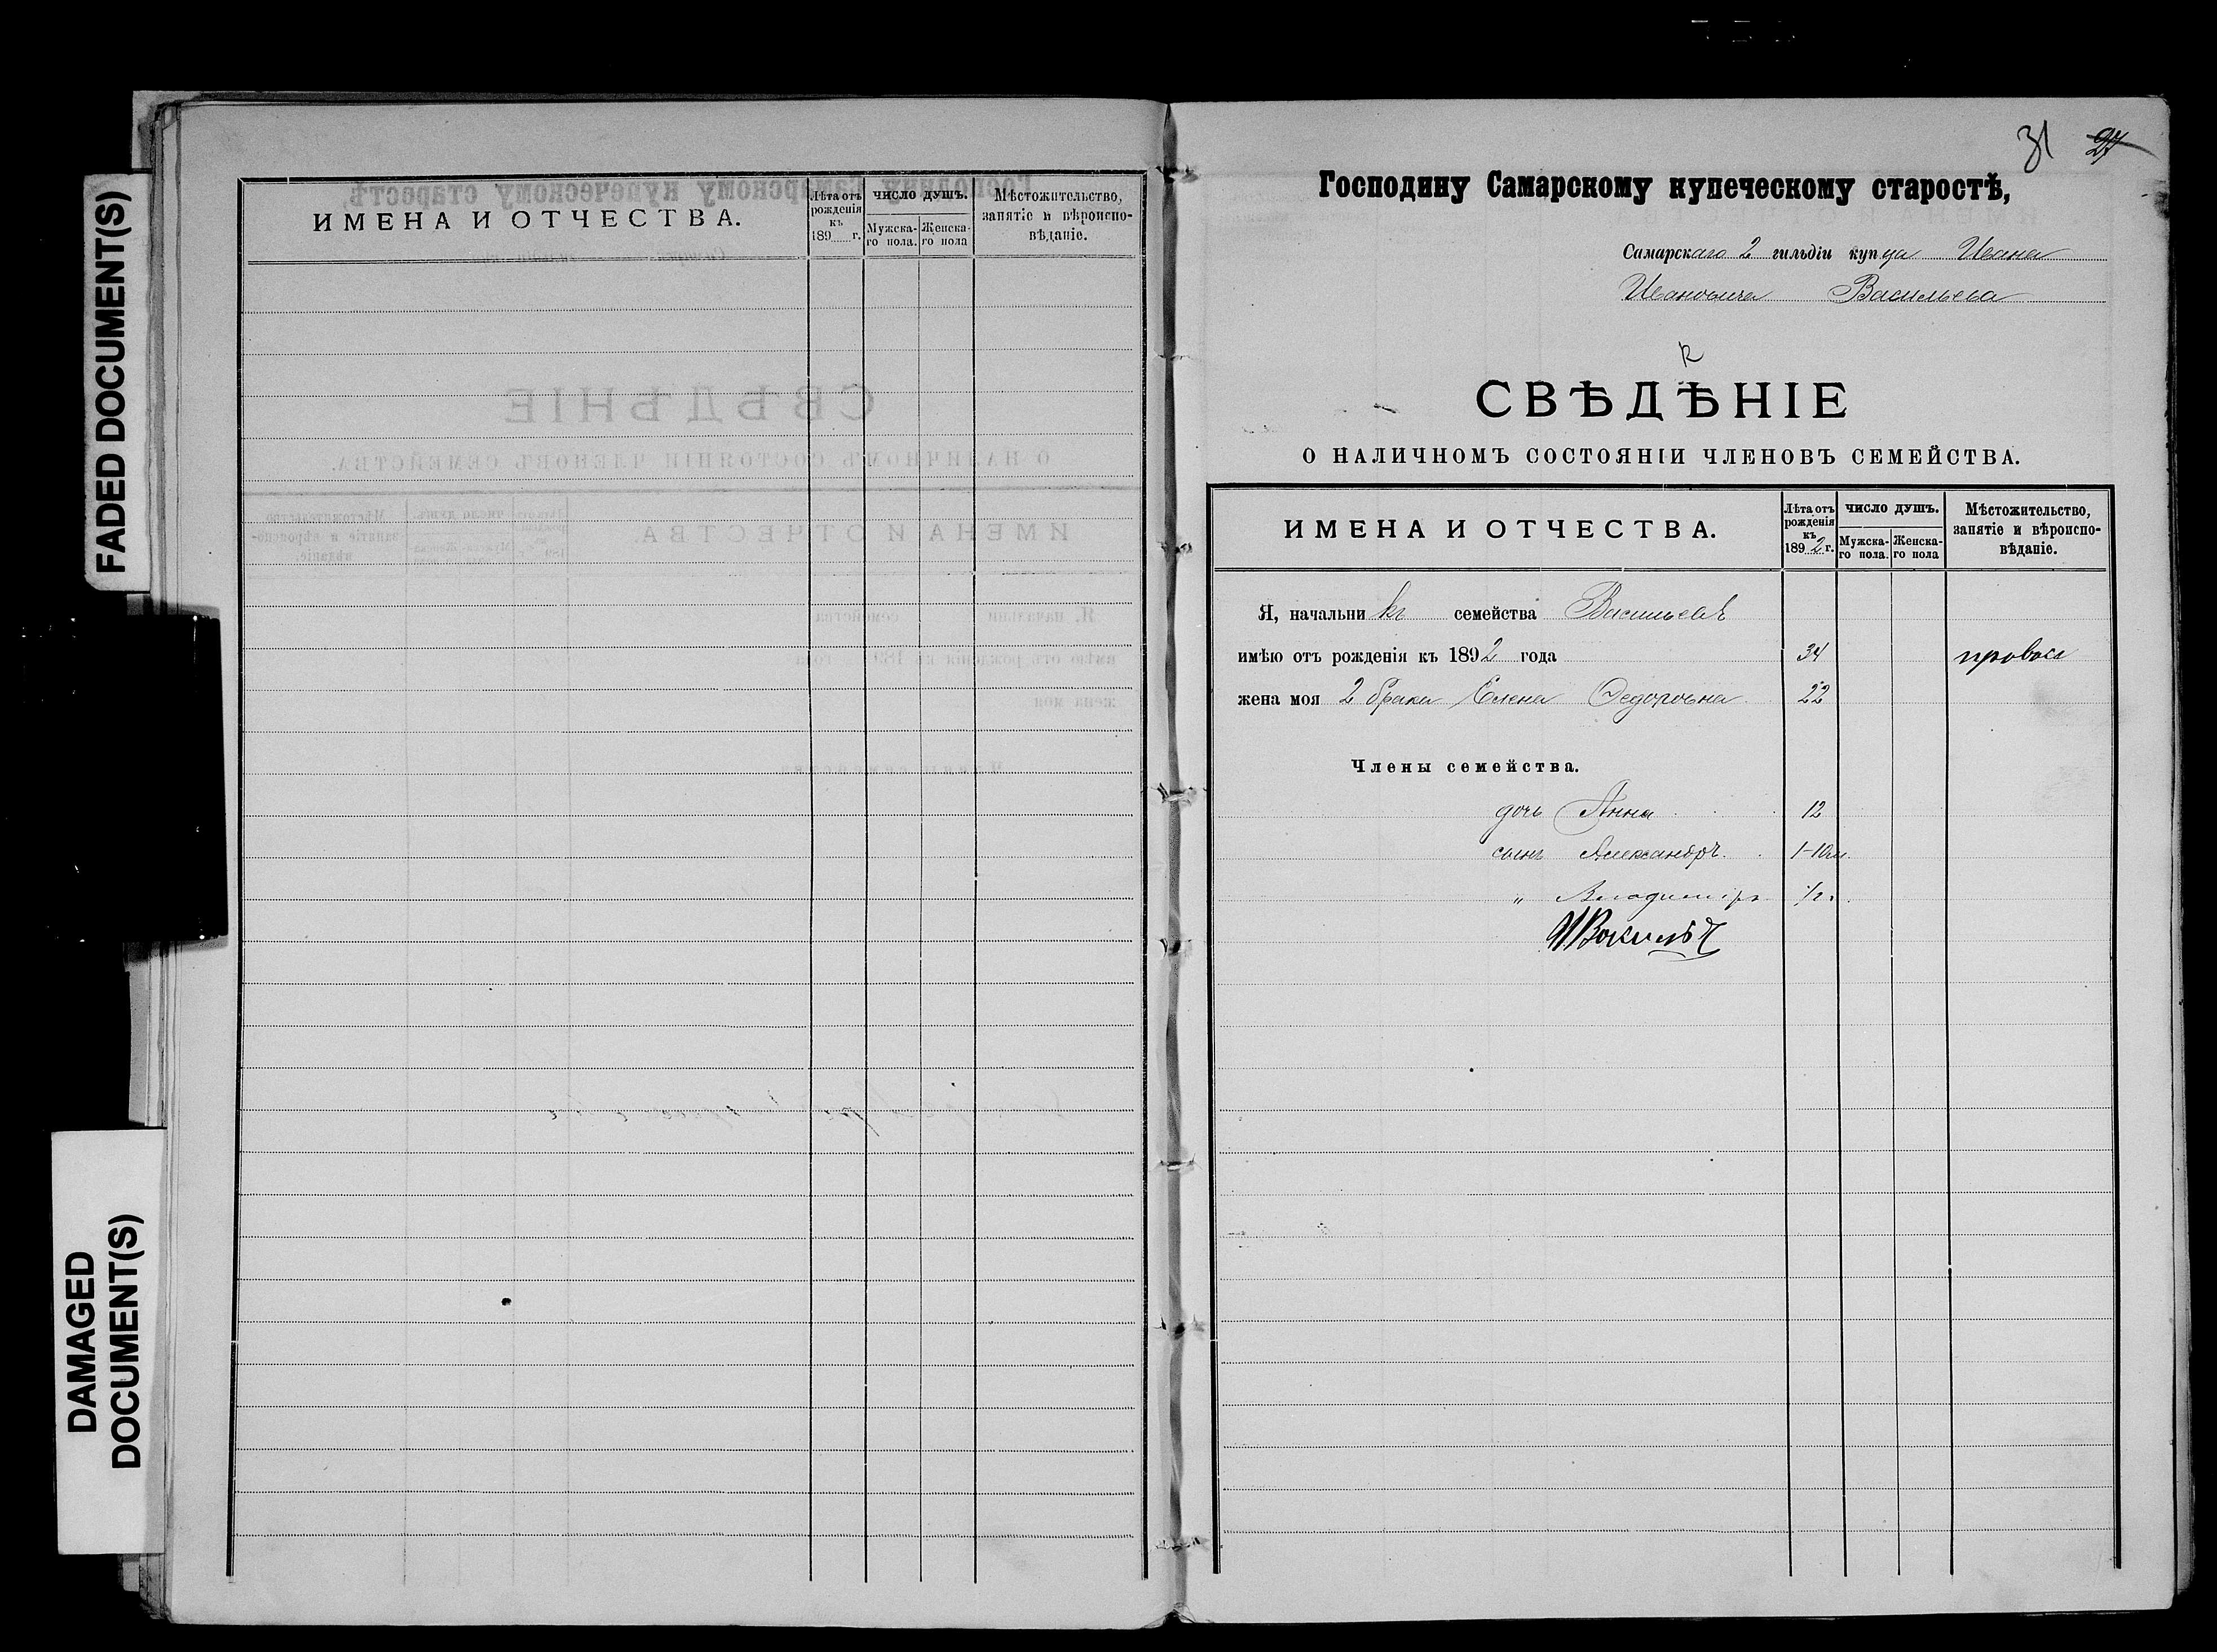 FADED DOCUMENT(S)
DAMAGED
DOCUMENT(S)
ИМЕНА И ОТЧЕСТВА.
Лѣта отъ рожденія къ 189 г.
ЧИСЛО ДУШЪ.
Мужска-го пола.
Женска-го пола
Мѣстожительство, занятіе и вѣроиспо-вѣданіе.
31 27
Господину Самарскому купеческому старостѣ,
Самарскаго 2 гильдіи купца Ивана
Ивановича Васильева
СВѢДѢНІЕ
О НАЛИЧНОМЪ СОСТОЯНІИ ЧЛЕНОВЪ СЕМЕЙСТВА.
ИМЕНА И ОТЧЕСТВА.
Лѣта отъ рожденія къ 1892 г.
ЧИСЛО ДУШЪ.
Мужска-го пола.
Женска-го пола
Мѣстожительство, занятіе и вѣроиспо-вѣданіе.
Я, начальникъ семейства Васильевъ
имѣю отъ рожденія къ 1892 года 34 правос
жена моя 2 брака Елена Федоровна 22
Члены семейства.
дочь Анна 12
сынъ Александръ 1-10м.
" Владиміръ 1/2 г.